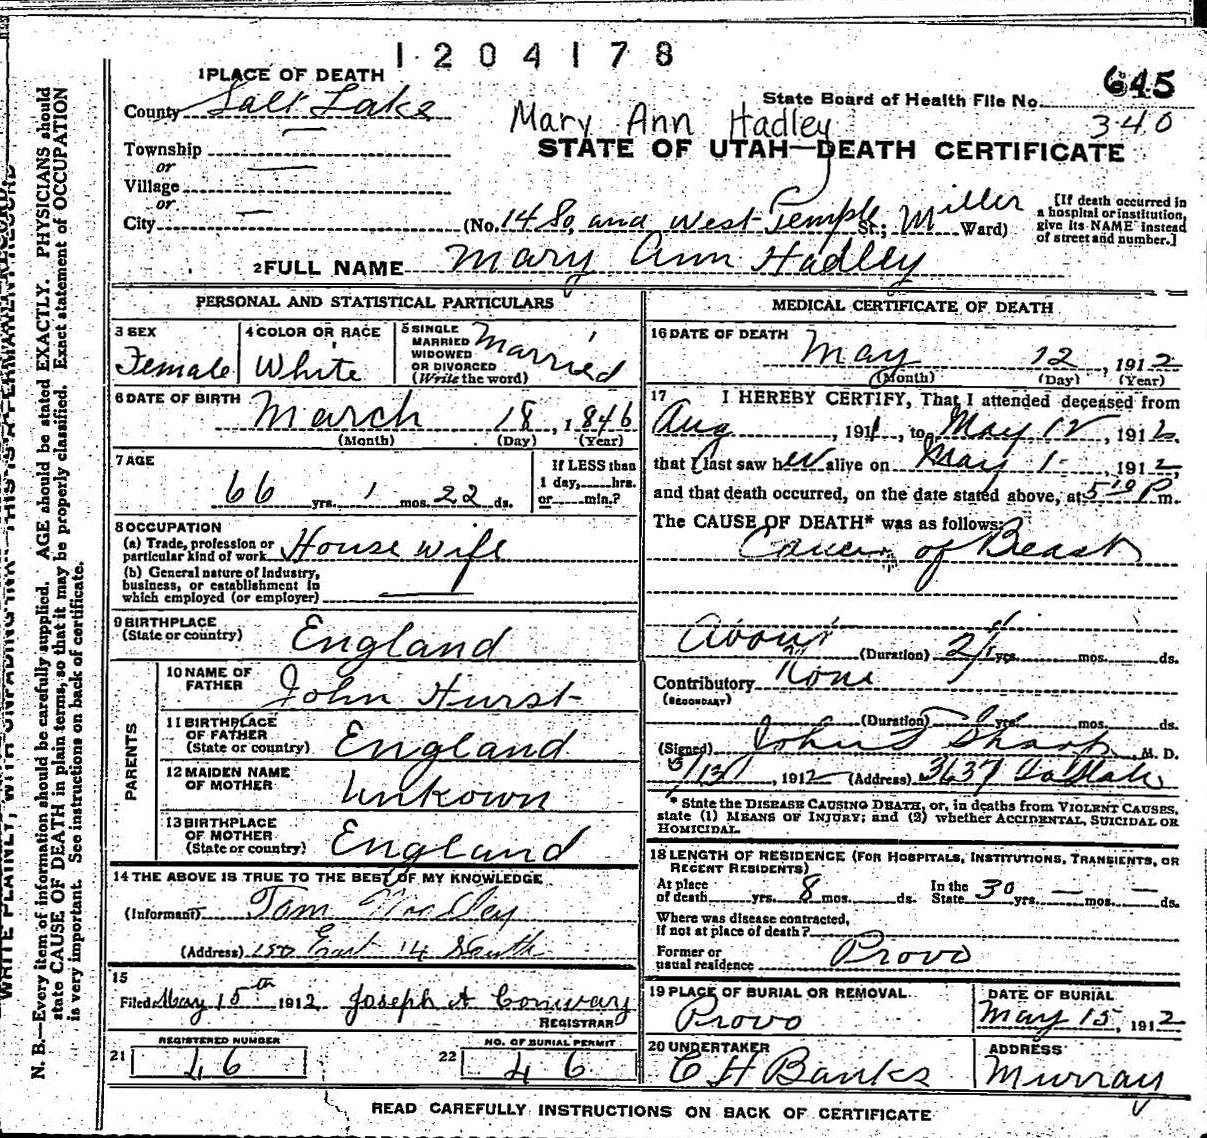 1204178
1 PLACE OF DEATH
County Salt Lake
State Board of Health File No. 645
340
Mary Ann Hadley
STATE OF UTAH—DEATH CERTIFICATE
Township
or
Village
or
City
(No. 14 So and West Temple St; Miller Ward)
[If death occurred in a hospital or institution, give its NAME instead of street and number.]
2 FULL NAME Mary Ann Hadley
PERSONAL AND STATISTICAL PARTICULARS
3 SEX
Female
4 COLOR OR RACE
White
5 SINGLE
MARRIED
WIDOWED
OR DIVORCED
(Write the word)
Married
6 DATE OF BIRTH
March 18, 1846
(Month) (Day) (Year)
7 AGE
66 yrs. 1 mos. 22 ds.
If LESS than
1 day, hrs.
or min.?
8 OCCUPATION
(a) Trade, profession or
particular kind of work House wife
(b) General nature of industry,
business, or establishment in
which employed (or employer)
9 BIRTHPLACE
(State or country)
England
PARENTS
10 NAME OF
FATHER
John Hurst
11 BIRTHPLACE
OF FATHER
(State or country)
England
12 MAIDEN NAME
OF MOTHER
Unkown
13 BIRTHPLACE
OF MOTHER
(State or country)
England
14 THE ABOVE IS TRUE TO THE BEST OF MY KNOWLEDGE
(Informant) Tom
(Address) 150 East 14 South
15
Filed May 15th 1912 Joseph A Conway
REGISTRAR
REGISTERED NUMBER
21 46
NO. OF BURIAL PERMIT
22 46
MEDICAL CERTIFICATE OF DEATH
16 DATE OF DEATH
May 12, 1912
(Month) (Day) (Year)
17 I HEREBY CERTIFY, That I attended deceased from
Aug, 1911, to May 12, 1912,
that I last saw her alive on May 1, 1912,
and that death occurred, on the date stated above, at 510 P m.
The CAUSE OF DEATH* was as follows:
Cancer of Breast
About
(Duration) yrs. mos. ds.
Contributory None
(SECONDARY)
(Duration) yrs. mos. ds.
(Signed) John F Sharp M. D.
5/13, 1912 (Address) 3637
* State the DISEASE CAUSING DEATH, or, in deaths from VIOLENT CAUSES,
state (1) MEANS OF INJURY; and (2) whether ACCIDENTAL, SUICIDAL OR
HOMICIDAL.
18 LENGTH OF RESIDENCE (FOR HOSPITALS, INSTITUTIONS, TRANSIENTS, OR
RECENT RESIDENTS)
At place
of death yrs. 8 mos. ds.
In the
State 30 yrs. mos. ds.
Where was disease contracted,
if not at place of death?
Former or
usual residence Provo
19 PLACE OF BURIAL OR REMOVAL
Provo
DATE OF BURIAL
May 15, 1912
20 UNDERTAKER
C H Banks
ADDRESS
Murray
READ CAREFULLY INSTRUCTIONS ON BACK OF CERTIFICATE
WRITE PLAINLY, WITH UNFADING INK—THIS IS A PERMANENT RECORD
N. B.—Every item of information should be carefully supplied. AGE should be stated EXACTLY. PHYSICIANS should
state CAUSE OF DEATH in plain terms, so that it may be properly classified. Exact statement of OCCUPATION
is very important. See instructions on back of certificate.